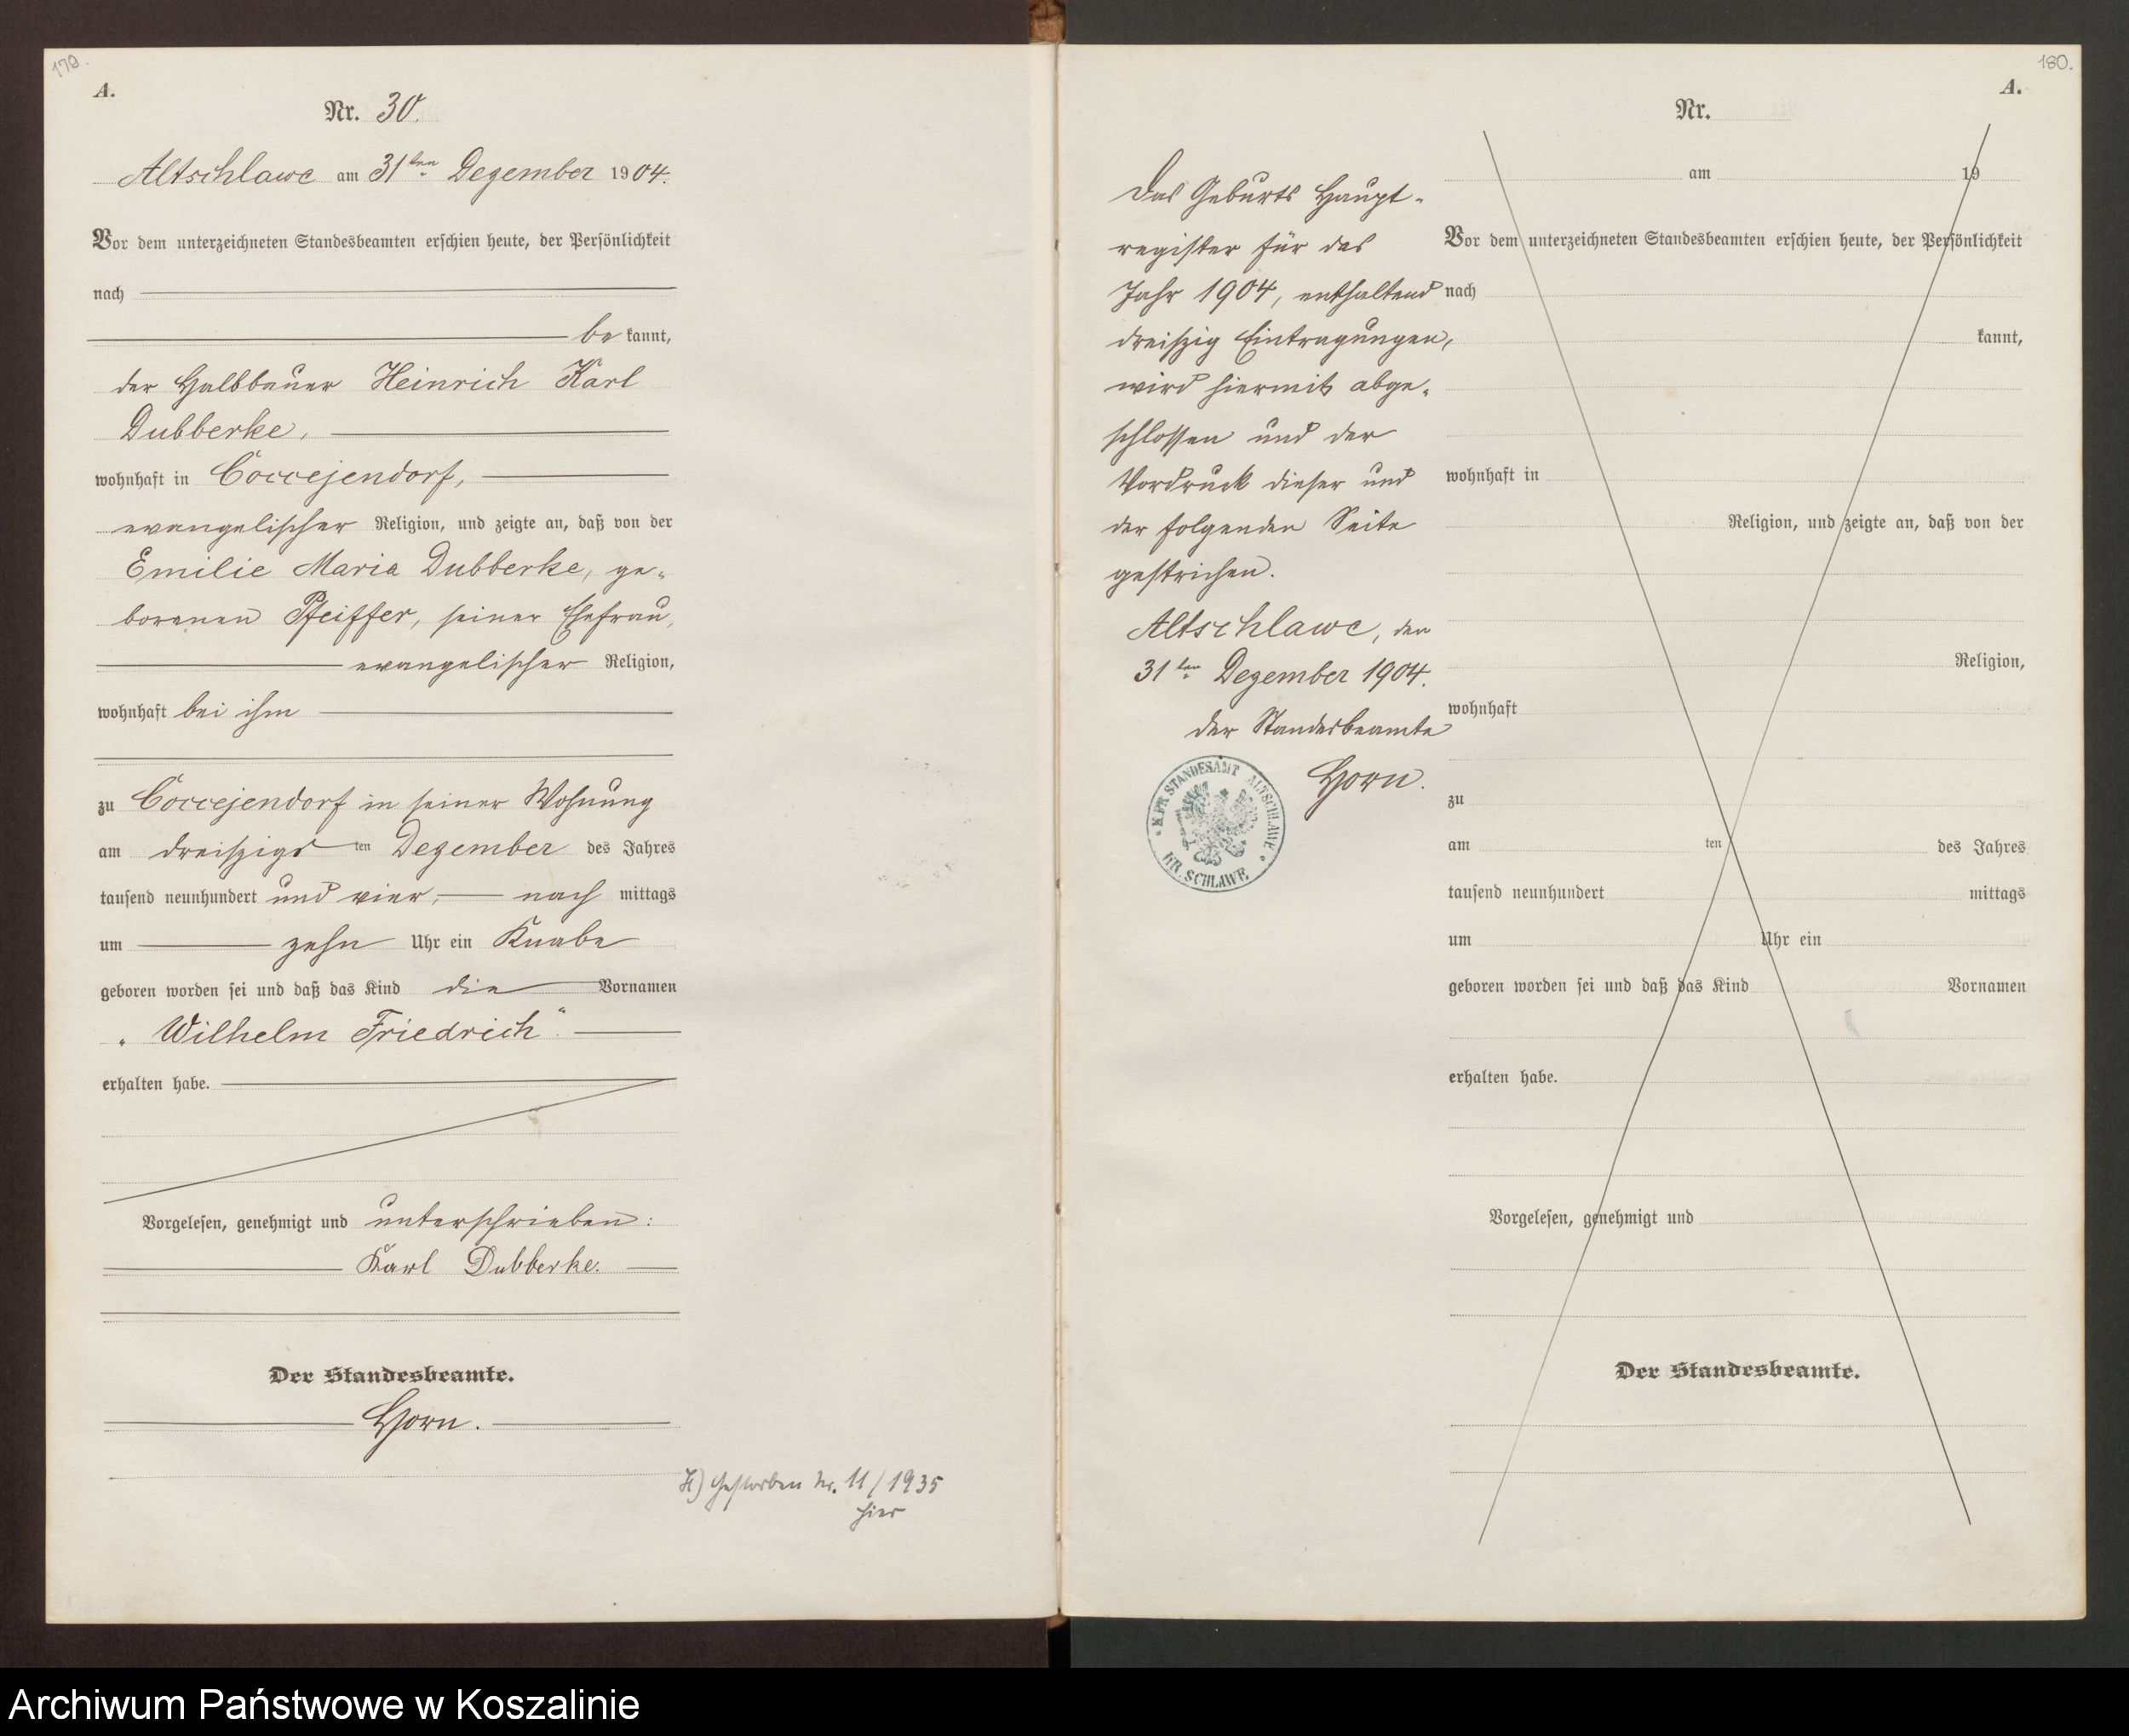 179.
A.
Nr. 30.
Altschlawe am 31ten Dezember 1904.
Vor dem unterzeichneten Standesbeamten erschien heute, der Persönlichkeit
nach
be kannt,
der Halbbauer Heinrich Karl
Dubberke,
wohnhaft in Coccejendorf,
evangelischer Religion, und zeigte an, daß von der
Emilie Maria Dubberke, ge-
borenen Pfeiffer, seiner Ehefrau,
evangelischer Religion,
wohnhaft bei ihm
zu Coccejendorf in seiner Wohnung
am dreiszigs ten Dezember des Jahres
tausend neunhundert und vier, nach mittags
um zehn Uhr ein Knabe
geboren worden sei und daß das Kind die Vornamen
„Wilhelm Friedrich“.
erhalten habe.
Vorgelesen, genehmigt und unterschrieben:
Karl Dubberke.
Der Standesbeamte.
Horn.
H) Gestorben Nr. 11/1935
hier
180.
A.
Das Geburts Haupt-
register für das
Jahr 1904, enthaltend
dreiszig Eintragungen,
wird hiermit abge-
schlossen und der
Vordruck dieser und
der folgenden Seite
gestrichen.
Altschlawe, den
31ten Dezember 1904.
Der Standesbeamte
Horn.
K. PR. STANDESAMT ALTSCHLAWE
KR. SCHLAWE
Nr.
am 19
Vor dem unterzeichneten Standesbeamten erschien heute, der Persönlichkeit
nach
kannt,
wohnhaft in
Religion, und zeigte an, daß von der
Religion,
wohnhaft
zu
am ten des Jahres
tausend neunhundert mittags
um Uhr ein
geboren worden sei und daß das Kind Vornamen
erhalten habe.
Vorgelesen, genehmigt und
Der Standesbeamte.
Archiwum Państwowe w Koszalinie